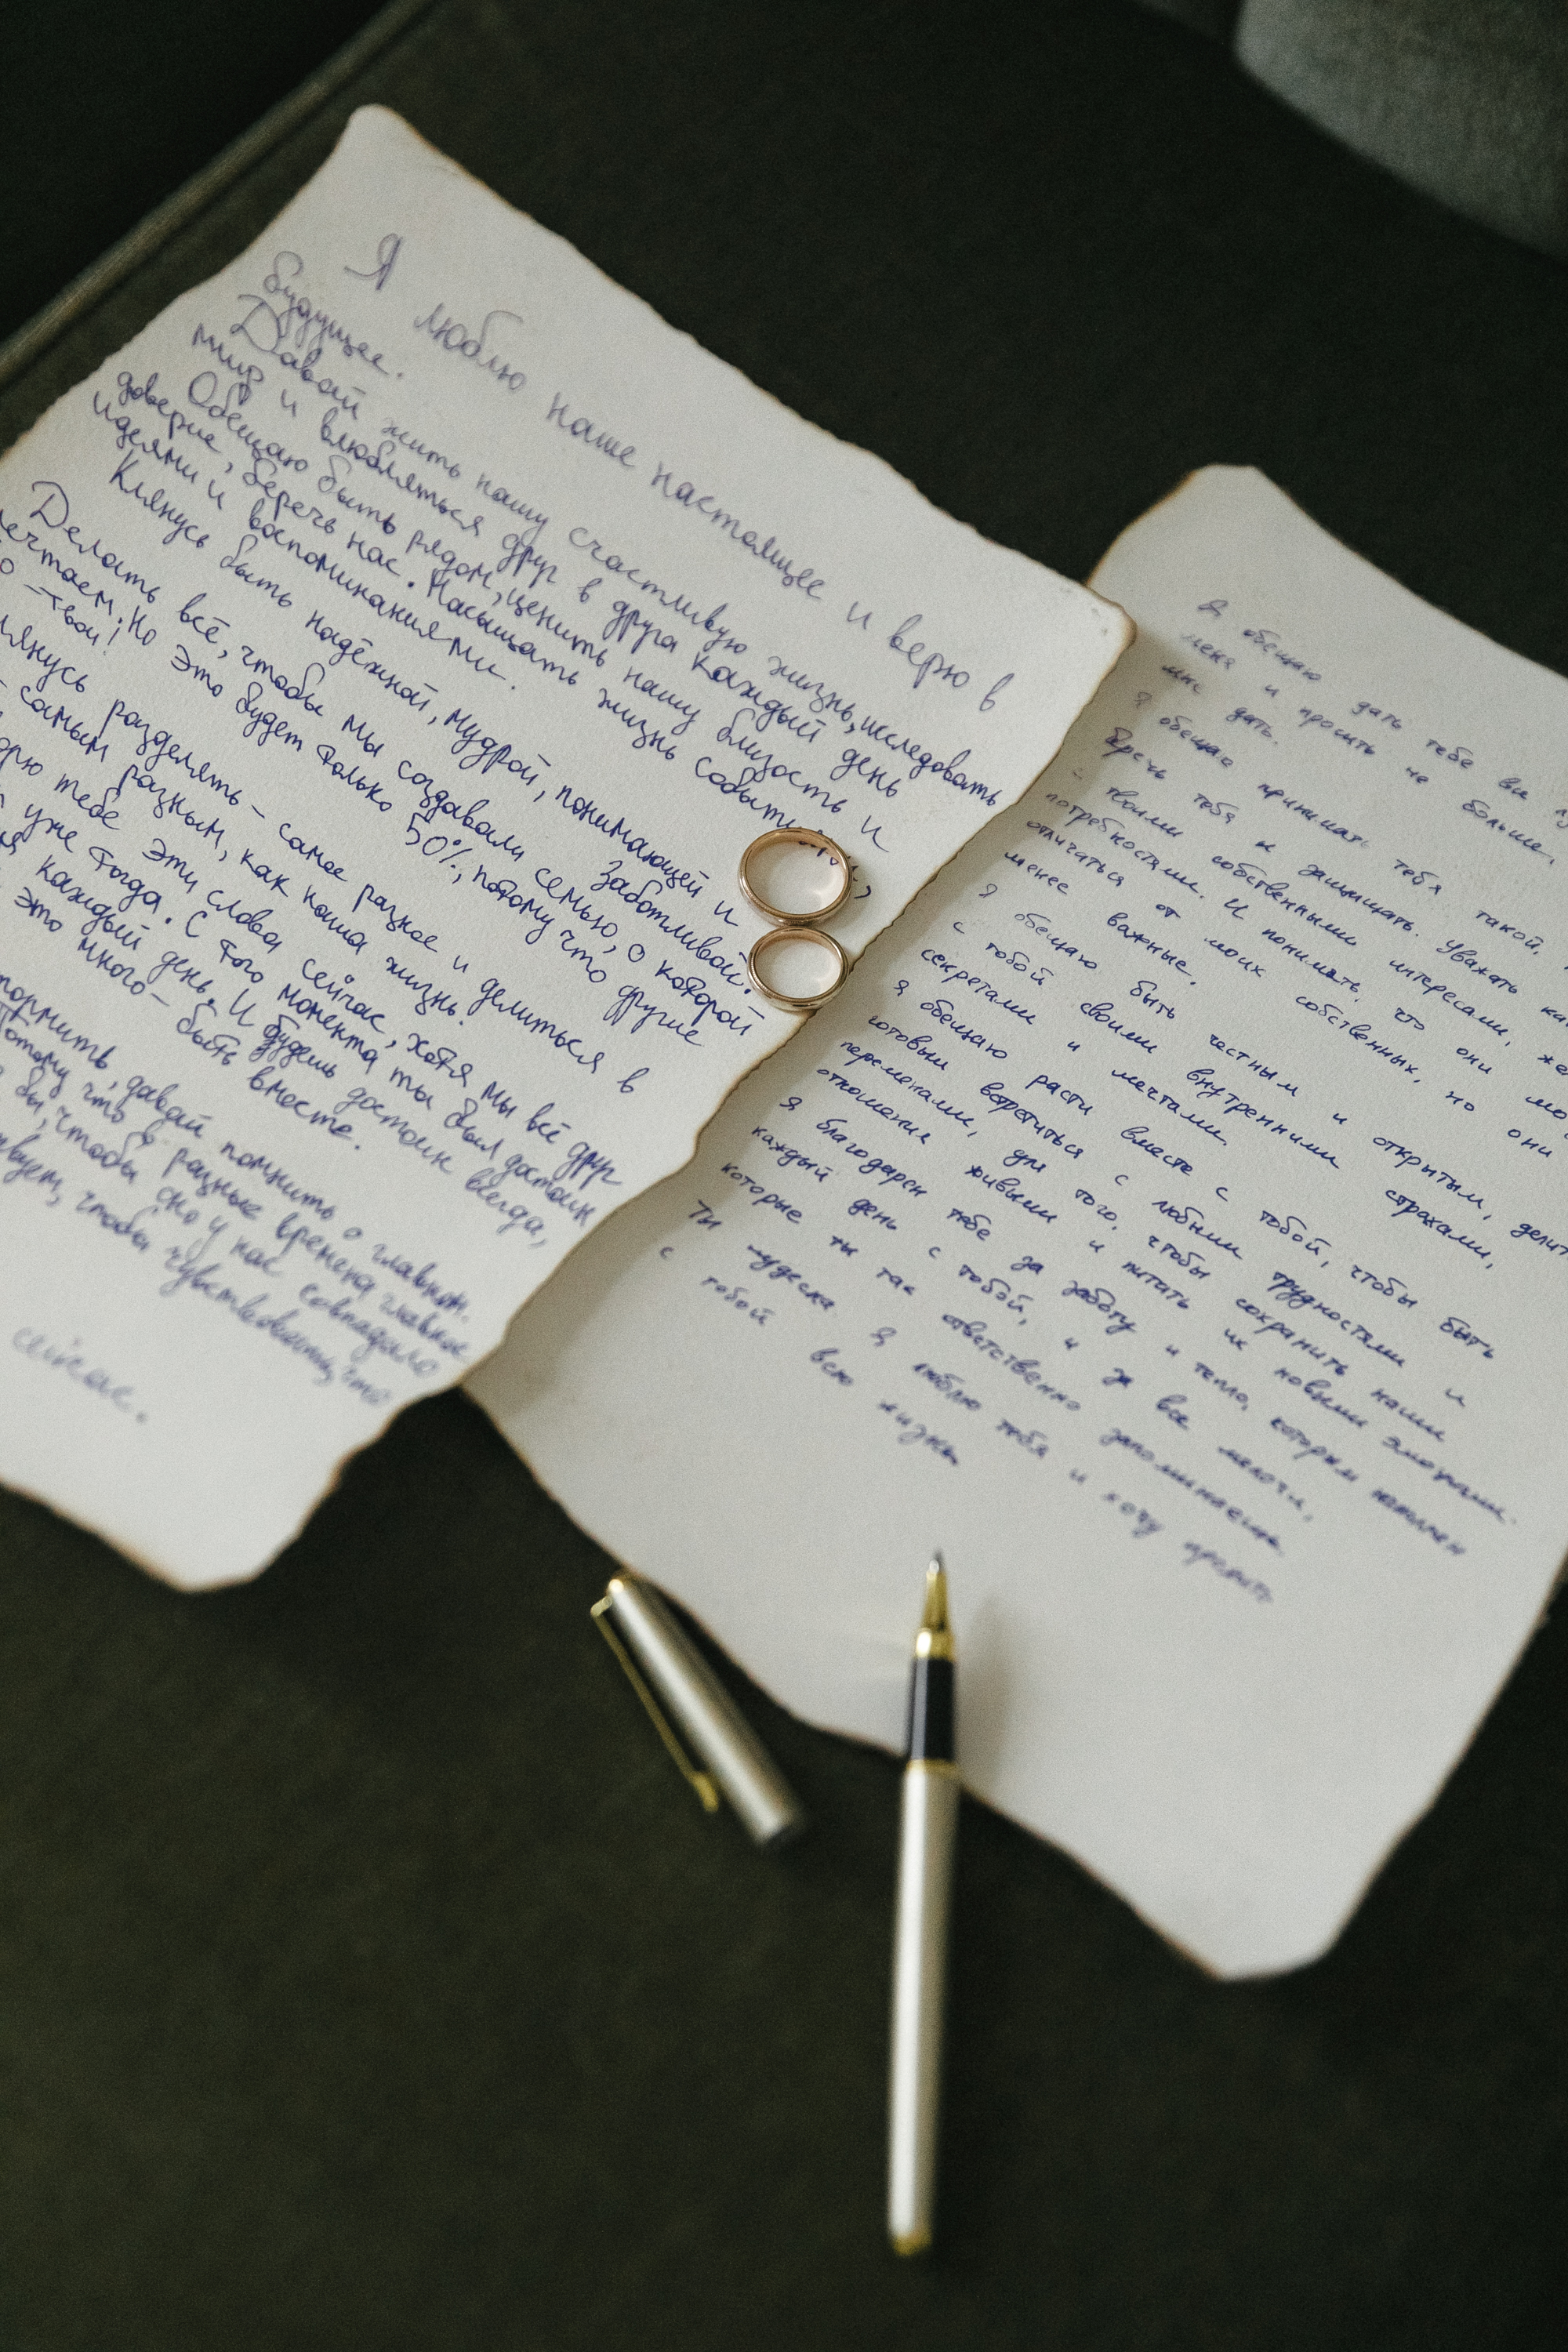 Я люблю наше настоящее и верю в
будущее.
Давай жить нашу счастливую жизнь, исследовать
мир и влюбляться друг в друга каждый день
Обещаю быть рядом, ценить нашу близость и
доверие, беречь нас. Насыщать жизнь
идеями и воспоминаниями.
Клянусь быть надёжной, мудрой, понимающей и
заботливой.
Делать всё, чтобы мы создавали семью, о которой
мечтаем. Но это будет только 50%, потому что другие
– твои!
разделять – самое разное и делиться в
самым разным, как наша жизнь.
тебе эти слова сейчас, хотя мы всё друг
уже тогда. С того момента ты был достоин
каждый день. И будешь достоин всегда,
это много – быть вместе.
давай помнить о главном.
Потому что в разные времена главное
бы, чтобы оно у нас совпадало
чтобы чувствовать, что
сейчас.
Я обещаю дать тебе все
меня и просить не больше,
мне дать.
Я обещаю принимать тебя такой,
беречь тебя и защищать. Уважать
твоими собственными интересами,
потребностями. И понимать, что они
отличаться от моих собственных, но они
менее важные.
Я обещаю быть честным и открытым,
с тобой своими внутренними страхами,
секретами и мечтами.
Я обещаю расти вместе с тобой, чтобы быть
готовым встретиться с любыми трудностями и
переменами, для того, чтобы сохранить наши
отношения живыми и питать их новыми эмоциями.
Я благодарен тебе за заботу и тепло, которым наполнен
каждый день с тобой, и за все мелочи,
которые ты так ответственно запоминаешь.
Ты чудесна. Я люблю тебя и хочу прожить
с тобой всю жизнь